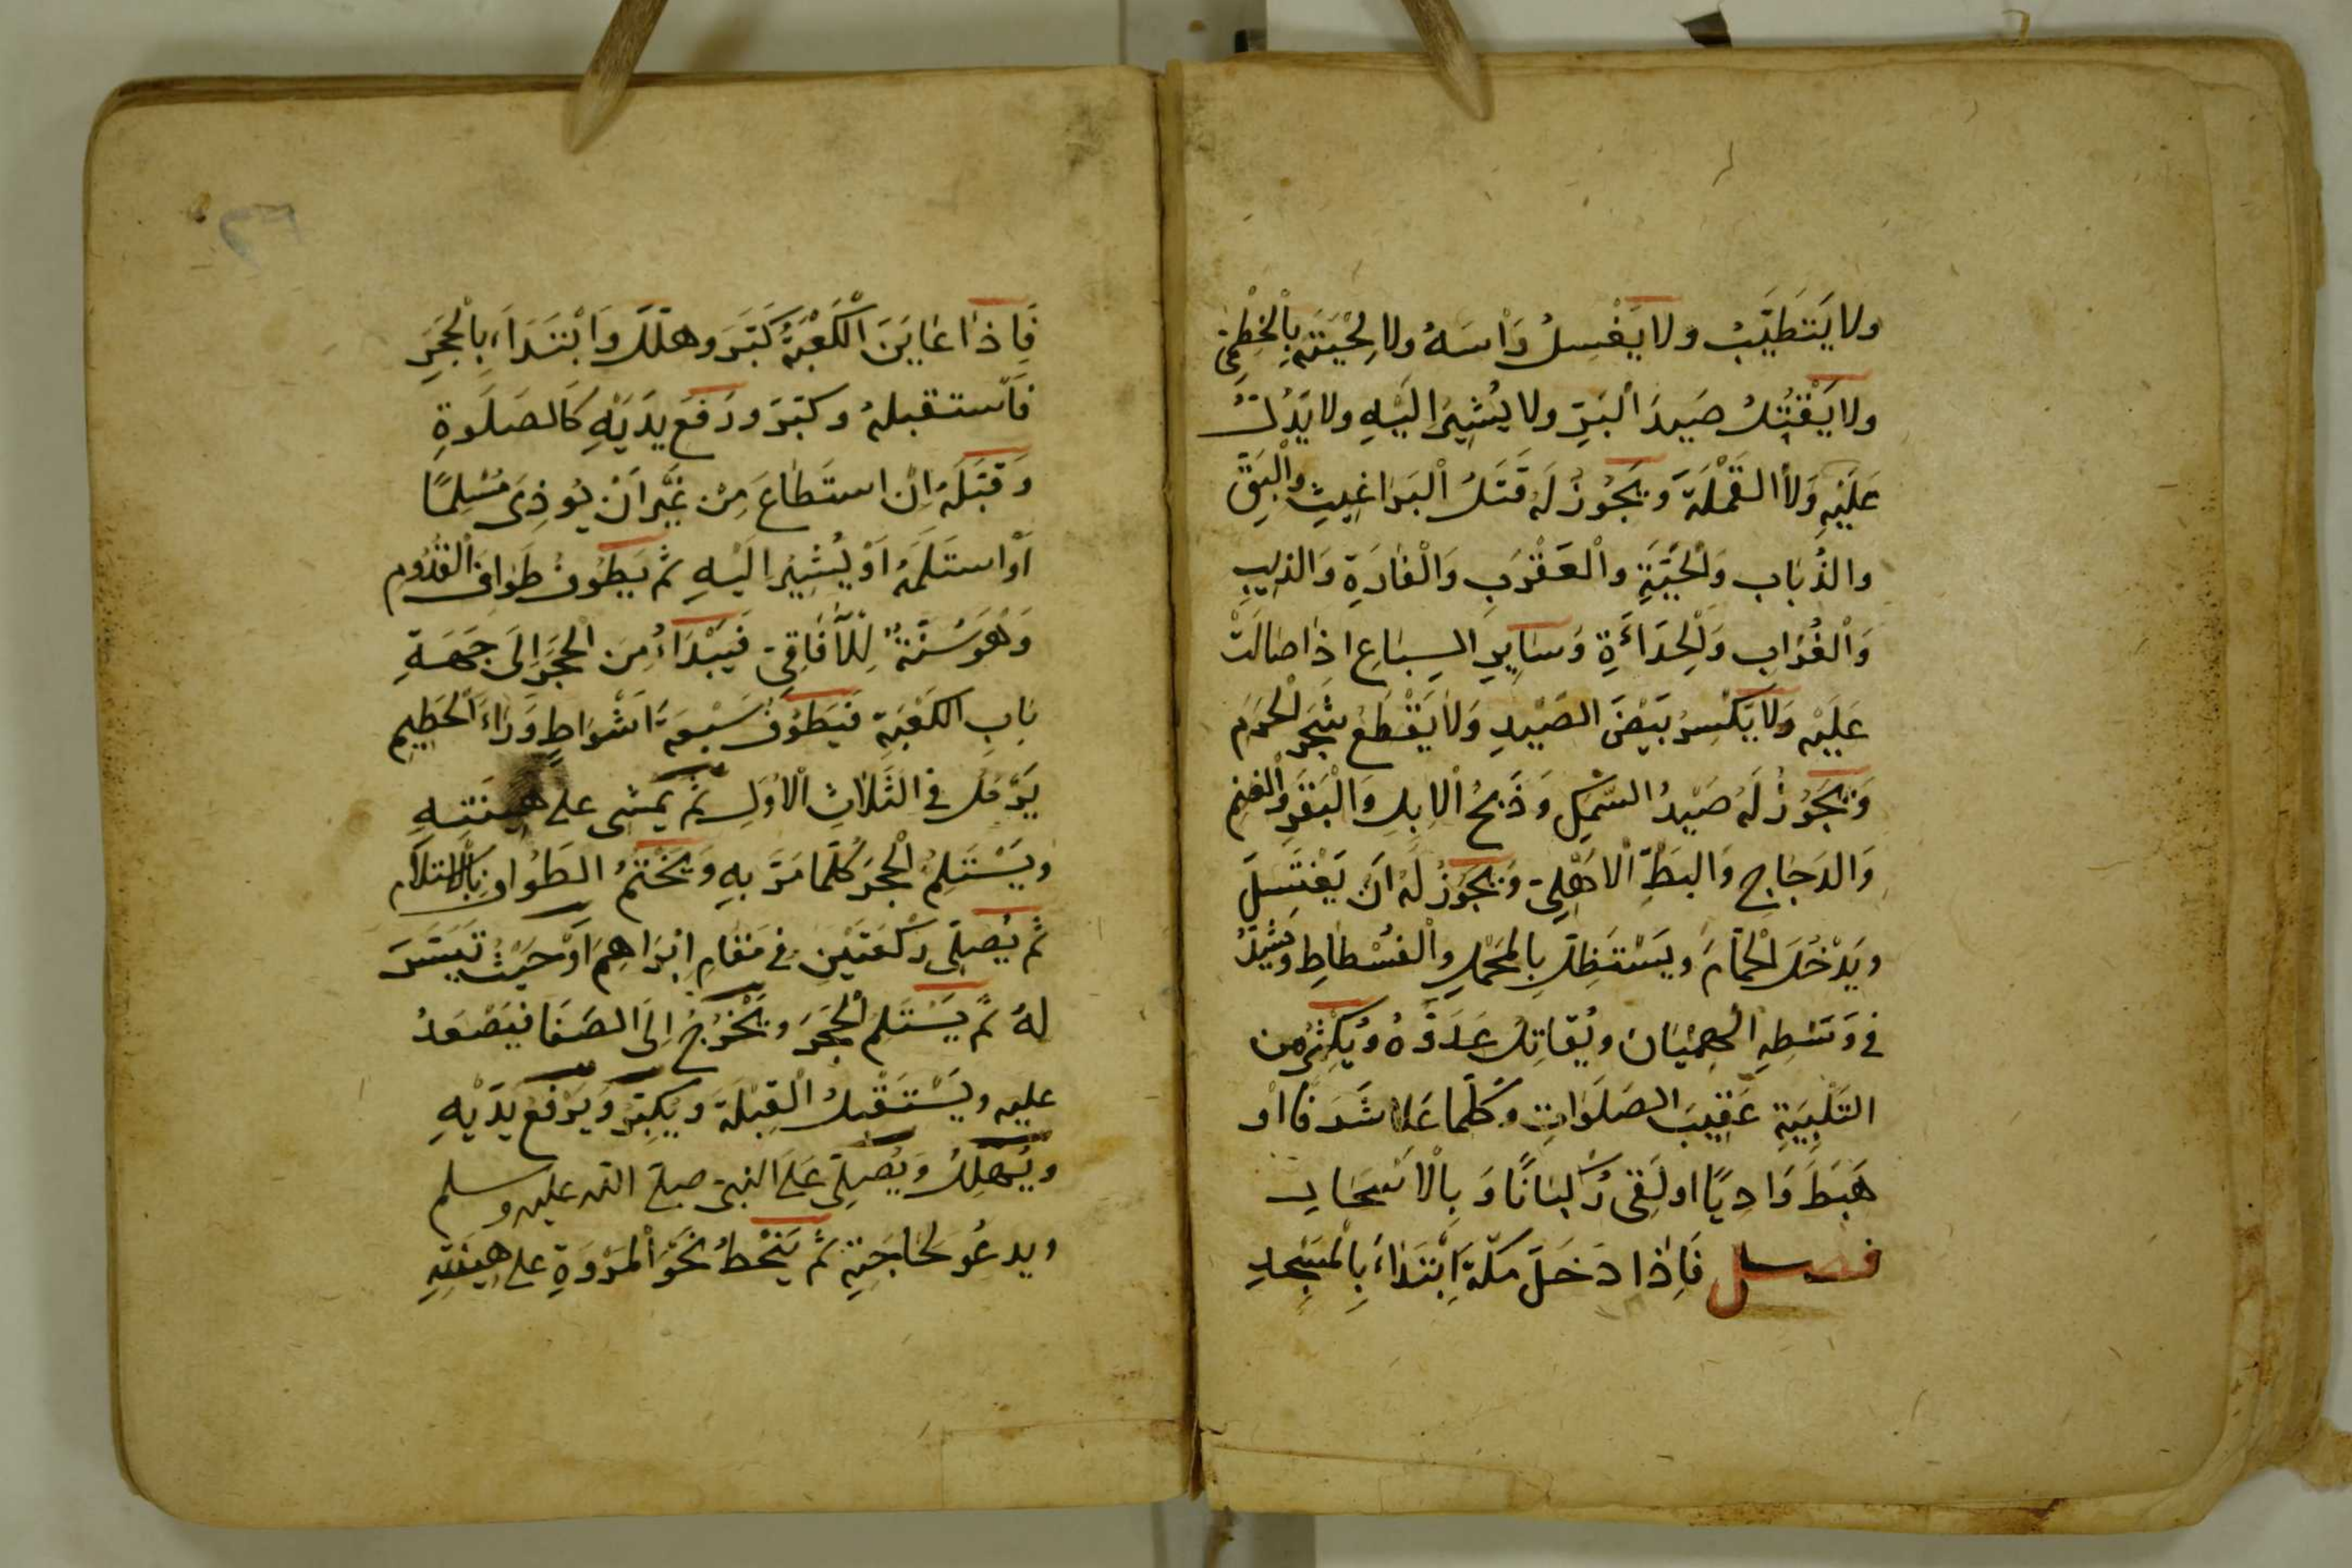 ولا يَتَطَيَّبُ ولا يَغْسِلُ رَاْسَهُ ولا لِحْيَتَهُ بِالْخِطْمِيّ
ولا يَقْتُلُ صَيدَ البَرِّ ولا يُشِيرُ اِلَيْهِ ولا يَدُلُّ
عَلَيْهِ وَلَا القَمْلَةَ وَيَجُوزُ لَهُ قَتْلُ الْبَرَاغِيثِ وَالْبَقِّ
والذُبَابِ وَالْحَيَّةِ والْعَقْرَبِ وَالْفَارَةِ وَالذِيبِ
وَالْغُرَابِ وَالْحِدَاَةِ وَسَايِرِ السِبَاعِ اِذَا صَالَتْ
عَلَيْهِ وَلَا يَكْسِرُ بَيْضَ الصَّيْدِ وَلَا يَقْطَعُ شَجَرَ الْحَرَمِ
وَيَجُوزُ لَهُ صَيْدُ السَّمَكِ وَذَبْحُ الْاِبِلِ وَالْبَقَرِ وَالْغَنَمِ
وَالدَجَاجِ وَالبَطِّ الْاَهْلِيّ وَيَجُوزُ لَهُ اَنْ يَغْتَسِلَ
وَيَدْخُلَ الْحَمَّامَ وَيَسْتَظِلَّ بِالْمَحْمِلِ وَالْفُسْطَاطِ وَيَشُدَّ
في وَسَطِهِ الْهِمْيَانَ ويُقَاتِلَ عَدُوَّهُ وَيُكْثِرُ مِنَ
التَلْبِيَةِ عَقِيبَ الصَلَوَاتِ وَكُلَّمَا عَلَا شَرَفًا اَوْ
هَبَطَ وَادِيًا او لَقِيَ رُكْبَانًا وَبِالْاَسْحَارِ
فصل فَاِذَا دَخَلَ مَكَّةَ اِبْتَدَاءَ بِالْمَسْجِدِ
فَاِذَا عَايَنَ الْكَعْبَةَ كَبَّرَ وهلَّلَ وَابْتَدَاءَ بِالْحَجَرِ
فَاستقبلهُ وكبّرَ ورَفَعَ يَدَيْهِ كَالصَلَوةِ
وَقَبَّلَهُ اِنْ استَطَاعَ مِنْ غَيْرِ اَنْ يُوذِىَ مُسْلِمًا
اَوْ استَلَمَهُ اَوْ يُشِيرَ اِلَيْهِ ثم يَطُوفُ طَوَافَ الْقُدُوم
وَهُوَ سُنَّةٌ لِلْآفَاقِيّ فَيَبْدَاءُ مِنَ الْحَجَرِ اِلَى جِهَةِ
بَابِ الكَعْبَةِ فَيَطُوفُ سَبْعَةَ اَشْوَاطٍ وَرَاءَ الْحَطِيمِ
يَرْمُلُ في الثَلَاثِ الْاُوَلِ ثم يَمْشِي على هِينَتِهِ
وَيَسْتَلِمُ الْحَجَرَ كُلَّمَا مَرَّ بِهِ وَيَخْتِمُ الطَوَافَ بِالْاِسْتِلَامِ
ثُمَّ يُصَلِّي رَكْعَتَيْنِ في مَقَامِ اِبْرَاهِيمَ اَوْ حَيْثُ تَيَسَّرَ
لهُ ثم يَسْتَلِم الْحَجَرَ وَيَخْرُجُ اِلَى الصَفَا فَيَصْعَدُ
عليه وَيَسْتَقْبِلُ الْقِبْلَةَ وَيُكَبِّرُ وَيَرْفَعُ يَدَيْهِ
ويُهَلِّلُ وَيُصَلِّي عَلَى النبيّ صلى الله عليه وسلم
ويدعُو لحَاجَتِهِ ثم يَنْحَطُّ نَحْوَ الْمَرْوَةِ على هِينَتِهِ